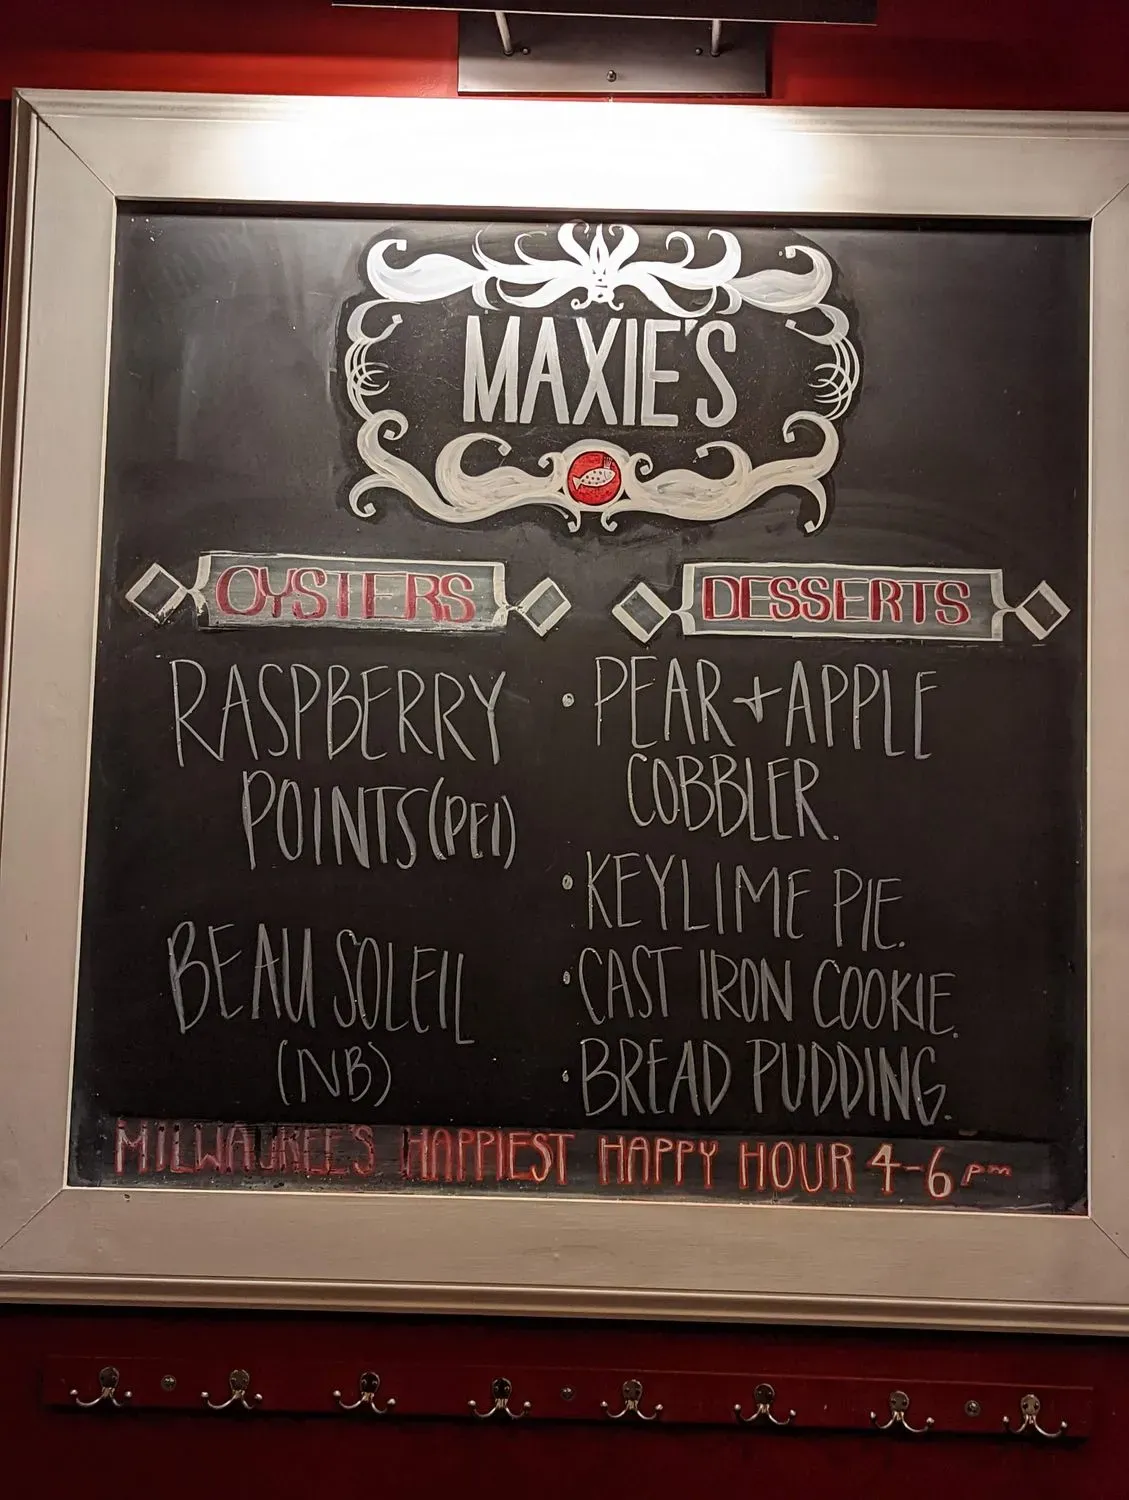 MAXIE'S
OYSTERS
RASPBERRY
POINTS (PEI)
BEAU SOLEIL
(NB)
DESSERTS
• PEAR + APPLE
COBBLER.
• KEYLIME PIE.
• CAST IRON COOKIE.
• BREAD PUDDING.
MILWAUKEE'S HAPPIEST HAPPY HOUR 4-6 pm